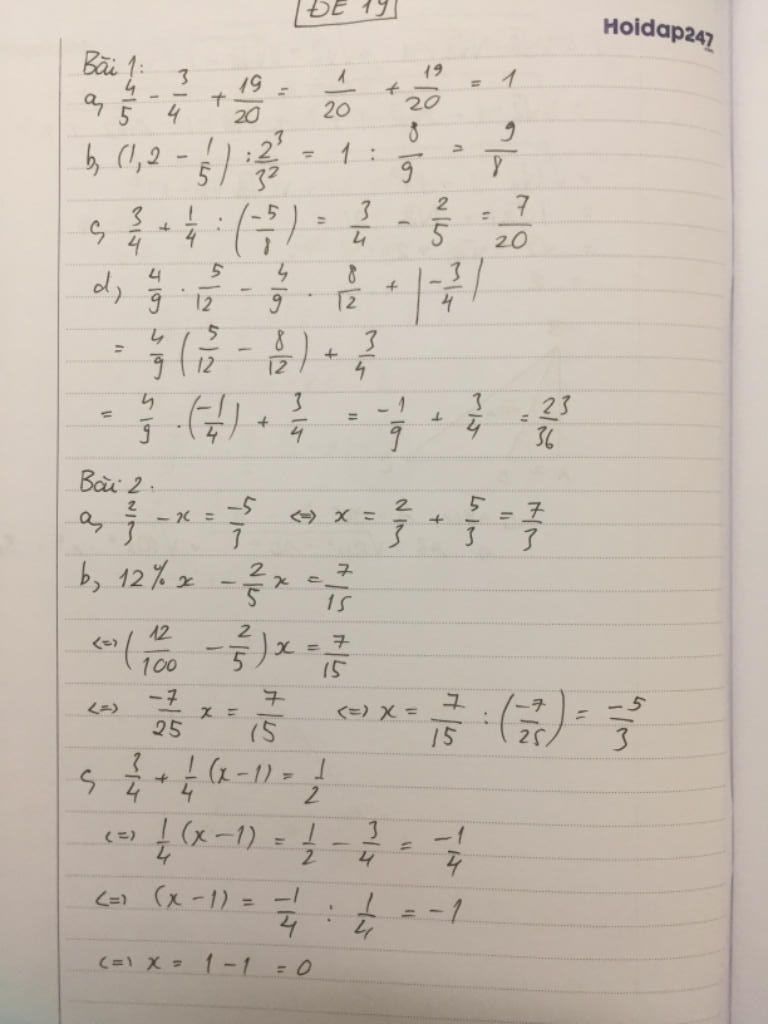 ĐỀ 19
Hoidap247
Bài 1:
a, 4/5 - 3/4 + 19/20 = 1/20 + 19/20 = 1
b, (1,2 - 1/5) : 2³/3² = 1 : 8/9 = 9/8
c, 3/4 + 1/4 : (-5/8) = 3/4 - 2/5 = 7/20
d, 4/9 . 5/12 - 4/9 . 8/12 + |-3/4|
= 4/9 (5/12 - 8/12) + 3/4
= 4/9 . (-1/4) + 3/4 = -1/9 + 3/4 = 23/36
Bài 2.
a, 2/3 - x = -5/3 <=> x = 2/3 + 5/3 = 7/3
b, 12% x - 2/5 x = 7/15
<=> (12/100 - 2/5) x = 7/15
<=> -7/25 x = 7/15 <=> x = 7/15 : (-7/25) = -5/3
c, 3/4 + 1/4 (x - 1) = 1/2
<=> 1/4 (x - 1) = 1/2 - 3/4 = -1/4
<=> (x - 1) = -1/4 : 1/4 = -1
<=> x = 1 - 1 = 0